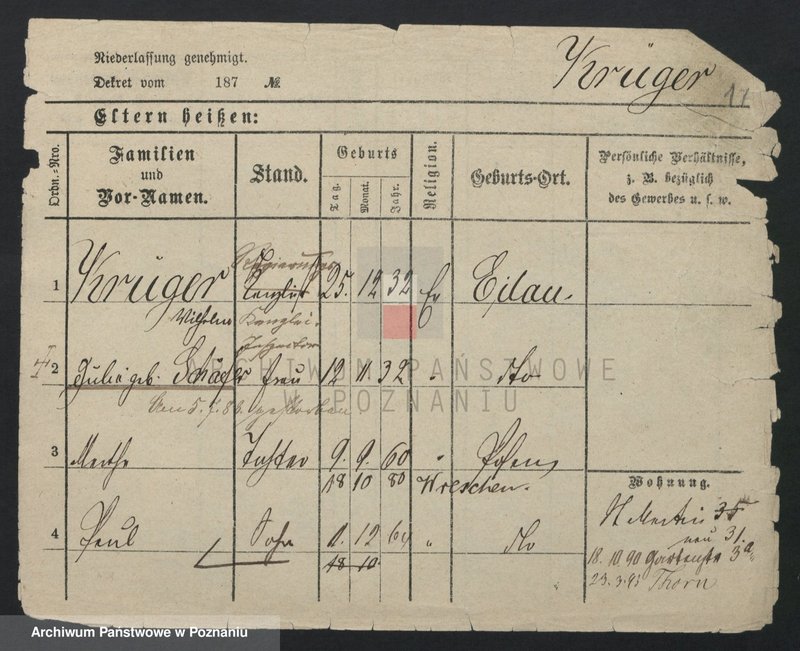 Niederlassung genehmigt.
Dekret vom 187 №
Krüger
17
Eltern heißen:
Ordn.-Nro.
Familien
und
Vor-Namen.
Stand.
Geburts
Tag.
Monat.
Jahr.
Religion.
Geburts-Ort.
Persönliche Verhältnisse,
z. B. bezüglich
des Gewerbes u. s. w.
1 Krüger Kanzlist 25. 12 32 Ev Eilau.
Wilhelm Kanzlei-
Inspector
2 Julie geb. Schäfer Frau 12 11. 32 " dto
am 5. 7. 86 gestorben
3 Martha Tochter 9. 9. 60 " Posen
18 10 80 Wreschen.
4 Paul Sohn 1. 12 64 " dto
18 10
Wohnung.
St Martin 35
neu 31.
18. 10. 90 Gartenstr 3a
23. 3. 93 Thorn
ARCHIWUM PAŃSTWOWE
W POZNANIU
Archiwum Państwowe w Poznaniu